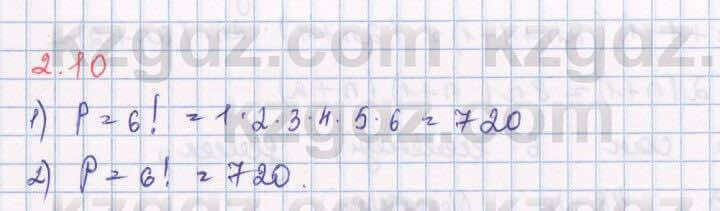 kzgdz.com kzgdz.com
2.10
1) P = 6! = 1·2·3·4·5·6 = 720
kzgdz.com
2) P = 6! = 720.